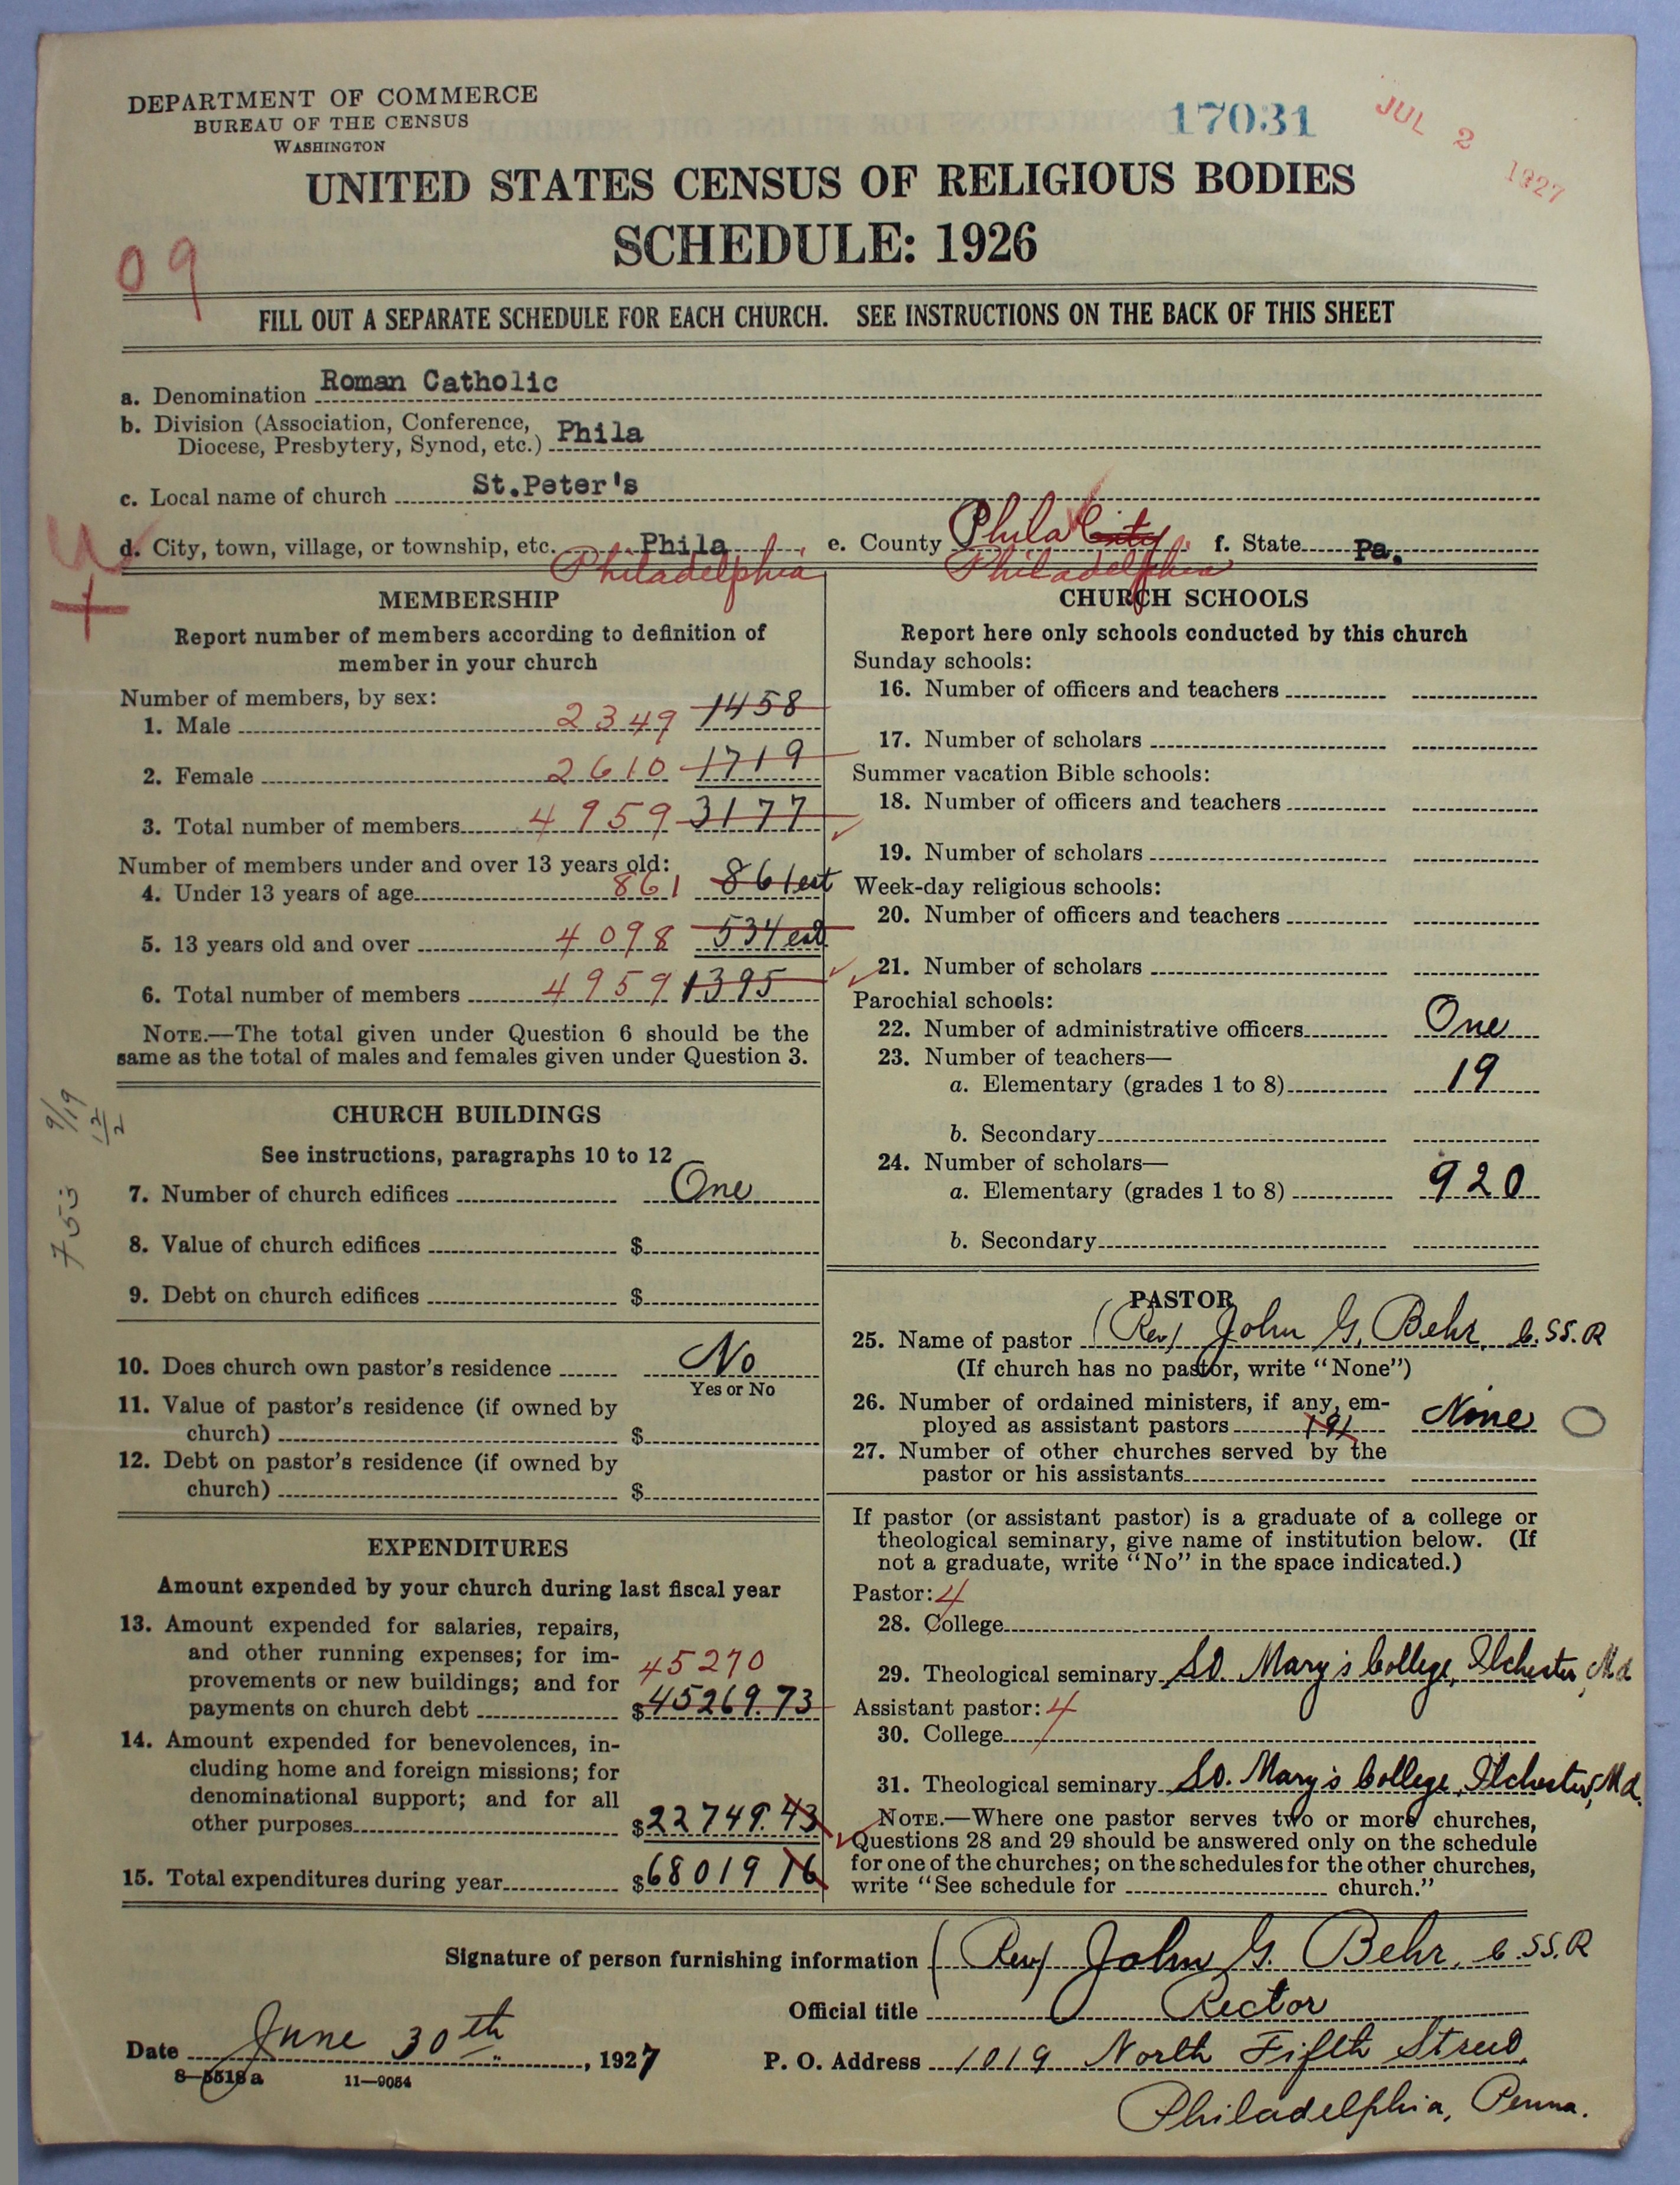 DEPARTMENT OF COMMERCE
BUREAU OF THE CENSUS
WASHINGTON
17031
JUL 2 1927
UNITED STATES CENSUS OF RELIGIOUS BODIES
SCHEDULE: 1926
09
FILL OUT A SEPARATE SCHEDULE FOR EACH CHURCH. SEE INSTRUCTIONS ON THE BACK OF THIS SHEET
a. Denomination Roman Catholic
b. Division (Association, Conference, Diocese, Presbytery, Synod, etc.) Phila
c. Local name of church St.Peter's
d. City, town, village, or township, etc. Phila e. County Phila City f. State Pa.
Philadelphia Philadelphia
MEMBERSHIP
Report number of members according to definition of
member in your church
Number of members, by sex:
1. Male 2349 1458
2. Female 2610 1719
3. Total number of members 4959 3177
Number of members under and over 13 years old:
4. Under 13 years of age 861 861 est
5. 13 years old and over 4098 534 est
6. Total number of members 4959 1395
NOTE.—The total given under Question 6 should be the
same as the total of males and females given under Question 3.
9/19
753
CHURCH BUILDINGS
See instructions, paragraphs 10 to 12
7. Number of church edifices One
8. Value of church edifices $
9. Debt on church edifices $
10. Does church own pastor's residence No
Yes or No
11. Value of pastor's residence (if owned by
church) $
12. Debt on pastor's residence (if owned by
church) $
EXPENDITURES
Amount expended by your church during last fiscal year
13. Amount expended for salaries, repairs,
and other running expenses; for im-
provements or new buildings; and for 45270
payments on church debt $45269.73
14. Amount expended for benevolences, in-
cluding home and foreign missions; for
denominational support; and for all
other purposes $22749.43
15. Total expenditures during year $68019 16
CHURCH SCHOOLS
Report here only schools conducted by this church
Sunday schools:
16. Number of officers and teachers
17. Number of scholars
Summer vacation Bible schools:
18. Number of officers and teachers
19. Number of scholars
Week-day religious schools:
20. Number of officers and teachers
21. Number of scholars
Parochial schools:
22. Number of administrative officers One
23. Number of teachers—
a. Elementary (grades 1 to 8) 19
b. Secondary
24. Number of scholars—
a. Elementary (grades 1 to 8) 920
b. Secondary
PASTOR
25. Name of pastor (Rev) John G. Behr, C.SS.R
(If church has no pastor, write "None")
26. Number of ordained ministers, if any, em-
ployed as assistant pastors None
27. Number of other churches served by the
pastor or his assistants
If pastor (or assistant pastor) is a graduate of a college or
theological seminary, give name of institution below. (If
not a graduate, write "No" in the space indicated.)
Pastor: 4
28. College
29. Theological seminary St. Mary's College, Ilchester, Md
Assistant pastor: 4
30. College
31. Theological seminary St. Mary's College, Ilchester, Md.
NOTE.—Where one pastor serves two or more churches,
Questions 28 and 29 should be answered only on the schedule
for one of the churches; on the schedules for the other churches,
write "See schedule for church."
Signature of person furnishing information (Rev) John G. Behr, C.SS.R
Official title Rector
Date June 30th, 1927 P. O. Address 1019 North Fifth Street,
8—5518a 11—9054
Philadelphia, Penna.